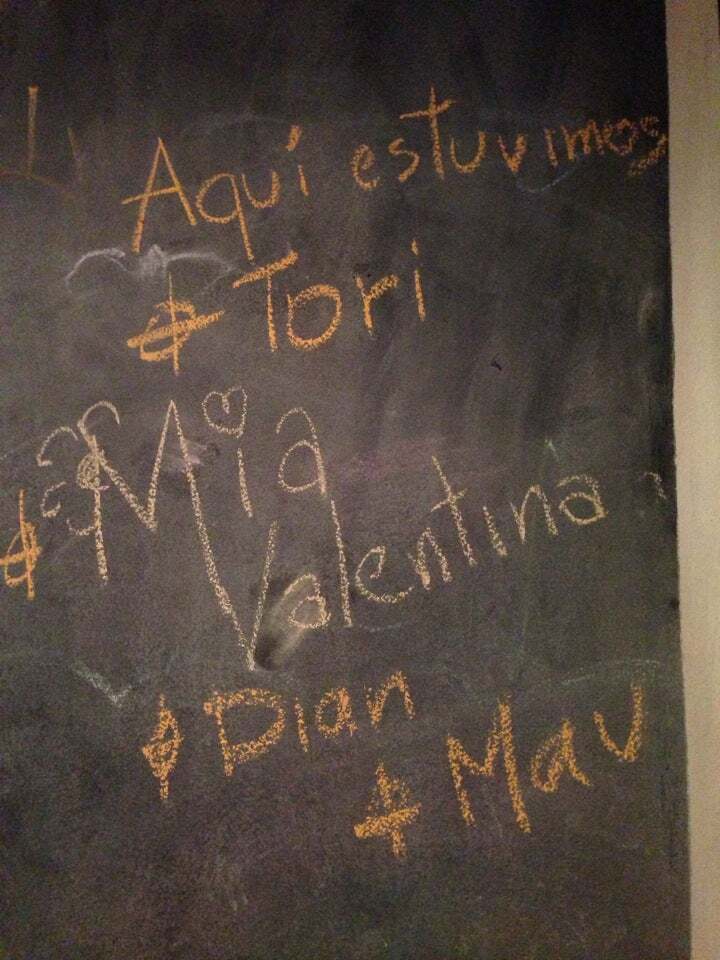 Aquí estuvimos
Tori
Mia
Valentina
Dian
Mau